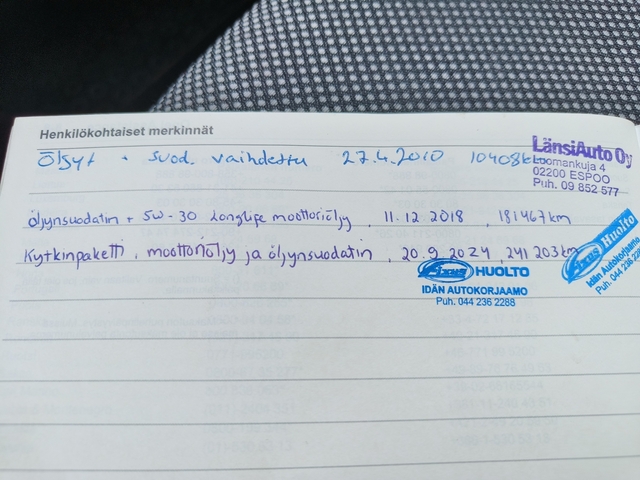 Henkilökohtaiset merkinnät
Öljyt + suod. vaihdettu 27.4.2010 10408km
LänsiAuto Oy
Luomankuja 4
02200 ESPOO
Puh. 09 852 577
öljynsuodatin + 5W-30 Longlife moottoriöljy, 11.12.2018, 181467km
Kytkinpaketti, moottoriöljy ja öljynsuodatin, 20.9.2024, 241203km
Fixus HUOLTO
IDÄN AUTOKORJAAMO
Puh. 044 236 2288
Fixus Huolto
Idän Autokorjaamo
Puh. 044 236 228